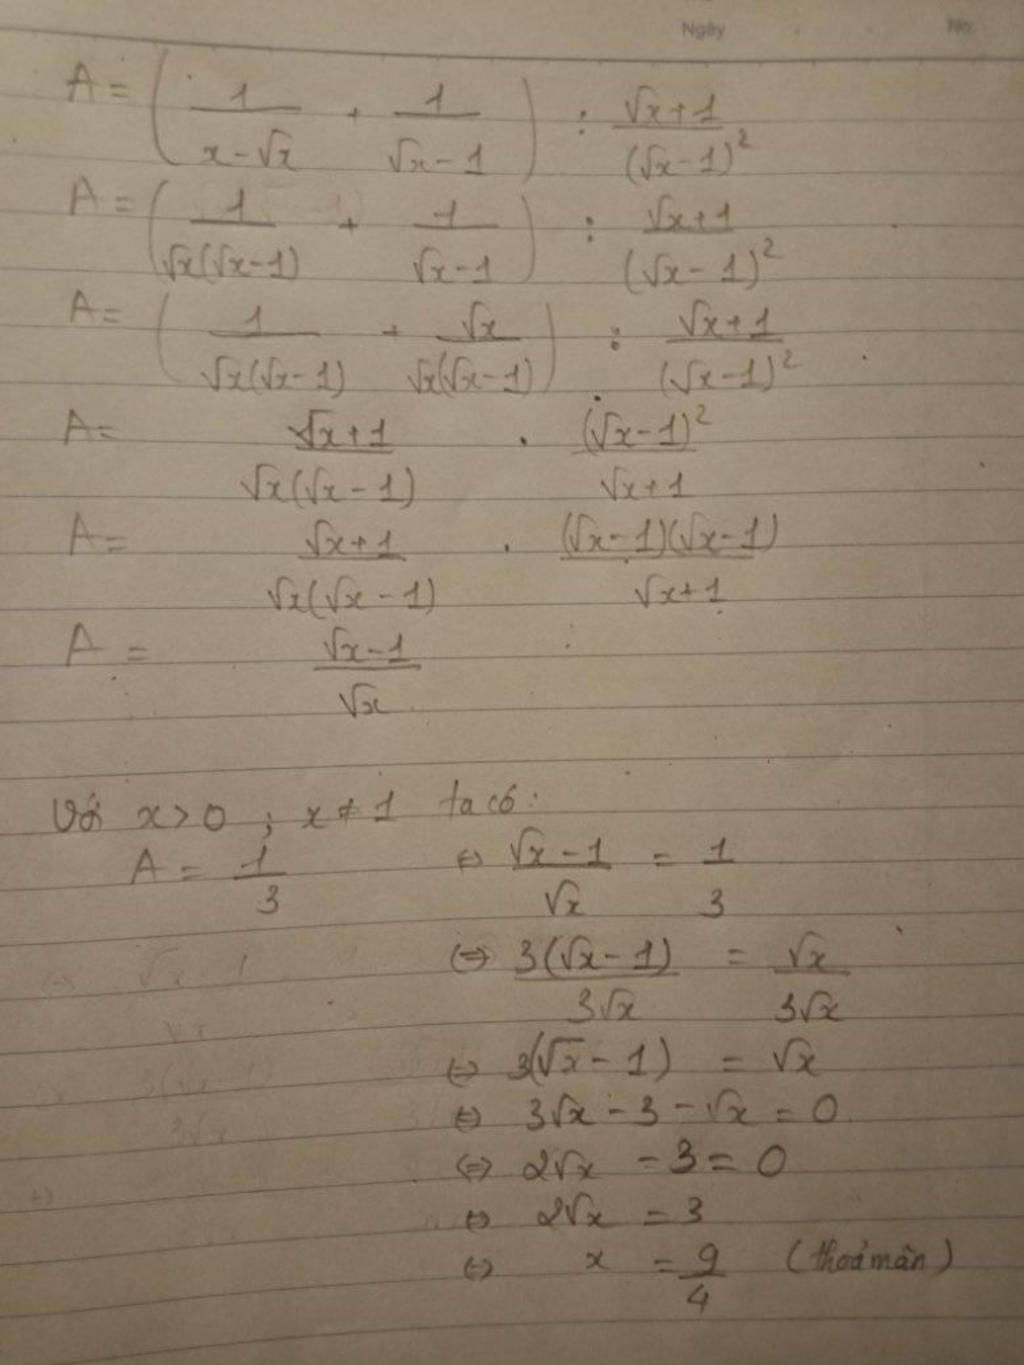 Ngày No.
A = ( 1/(x-√x) + 1/(√x-1) ) : (√x+1)/(√x-1)²
A = ( 1/(√x(√x-1)) + 1/(√x-1) ) : (√x+1)/(√x-1)²
A = ( 1/(√x(√x-1)) + √x/(√x(√x-1)) ) : (√x+1)/(√x-1)²
A = (√x+1)/(√x(√x-1)) . (√x-1)²/(√x+1)
A = (√x+1)/(√x(√x-1)) . (√x-1)(√x-1)/(√x+1)
A = (√x-1)/√x
Với x>0 ; x≠1 ta có:
A = 1/3 ⇔ (√x-1)/√x = 1/3
⇔ 3(√x-1)/(3√x) = √x/(3√x)
⇔ 3(√x-1) = √x
⇔ 3√x-3-√x=0
⇔ 2√x-3=0
⇔ 2√x=3
⇔ x = 9/4 (thoả mãn)